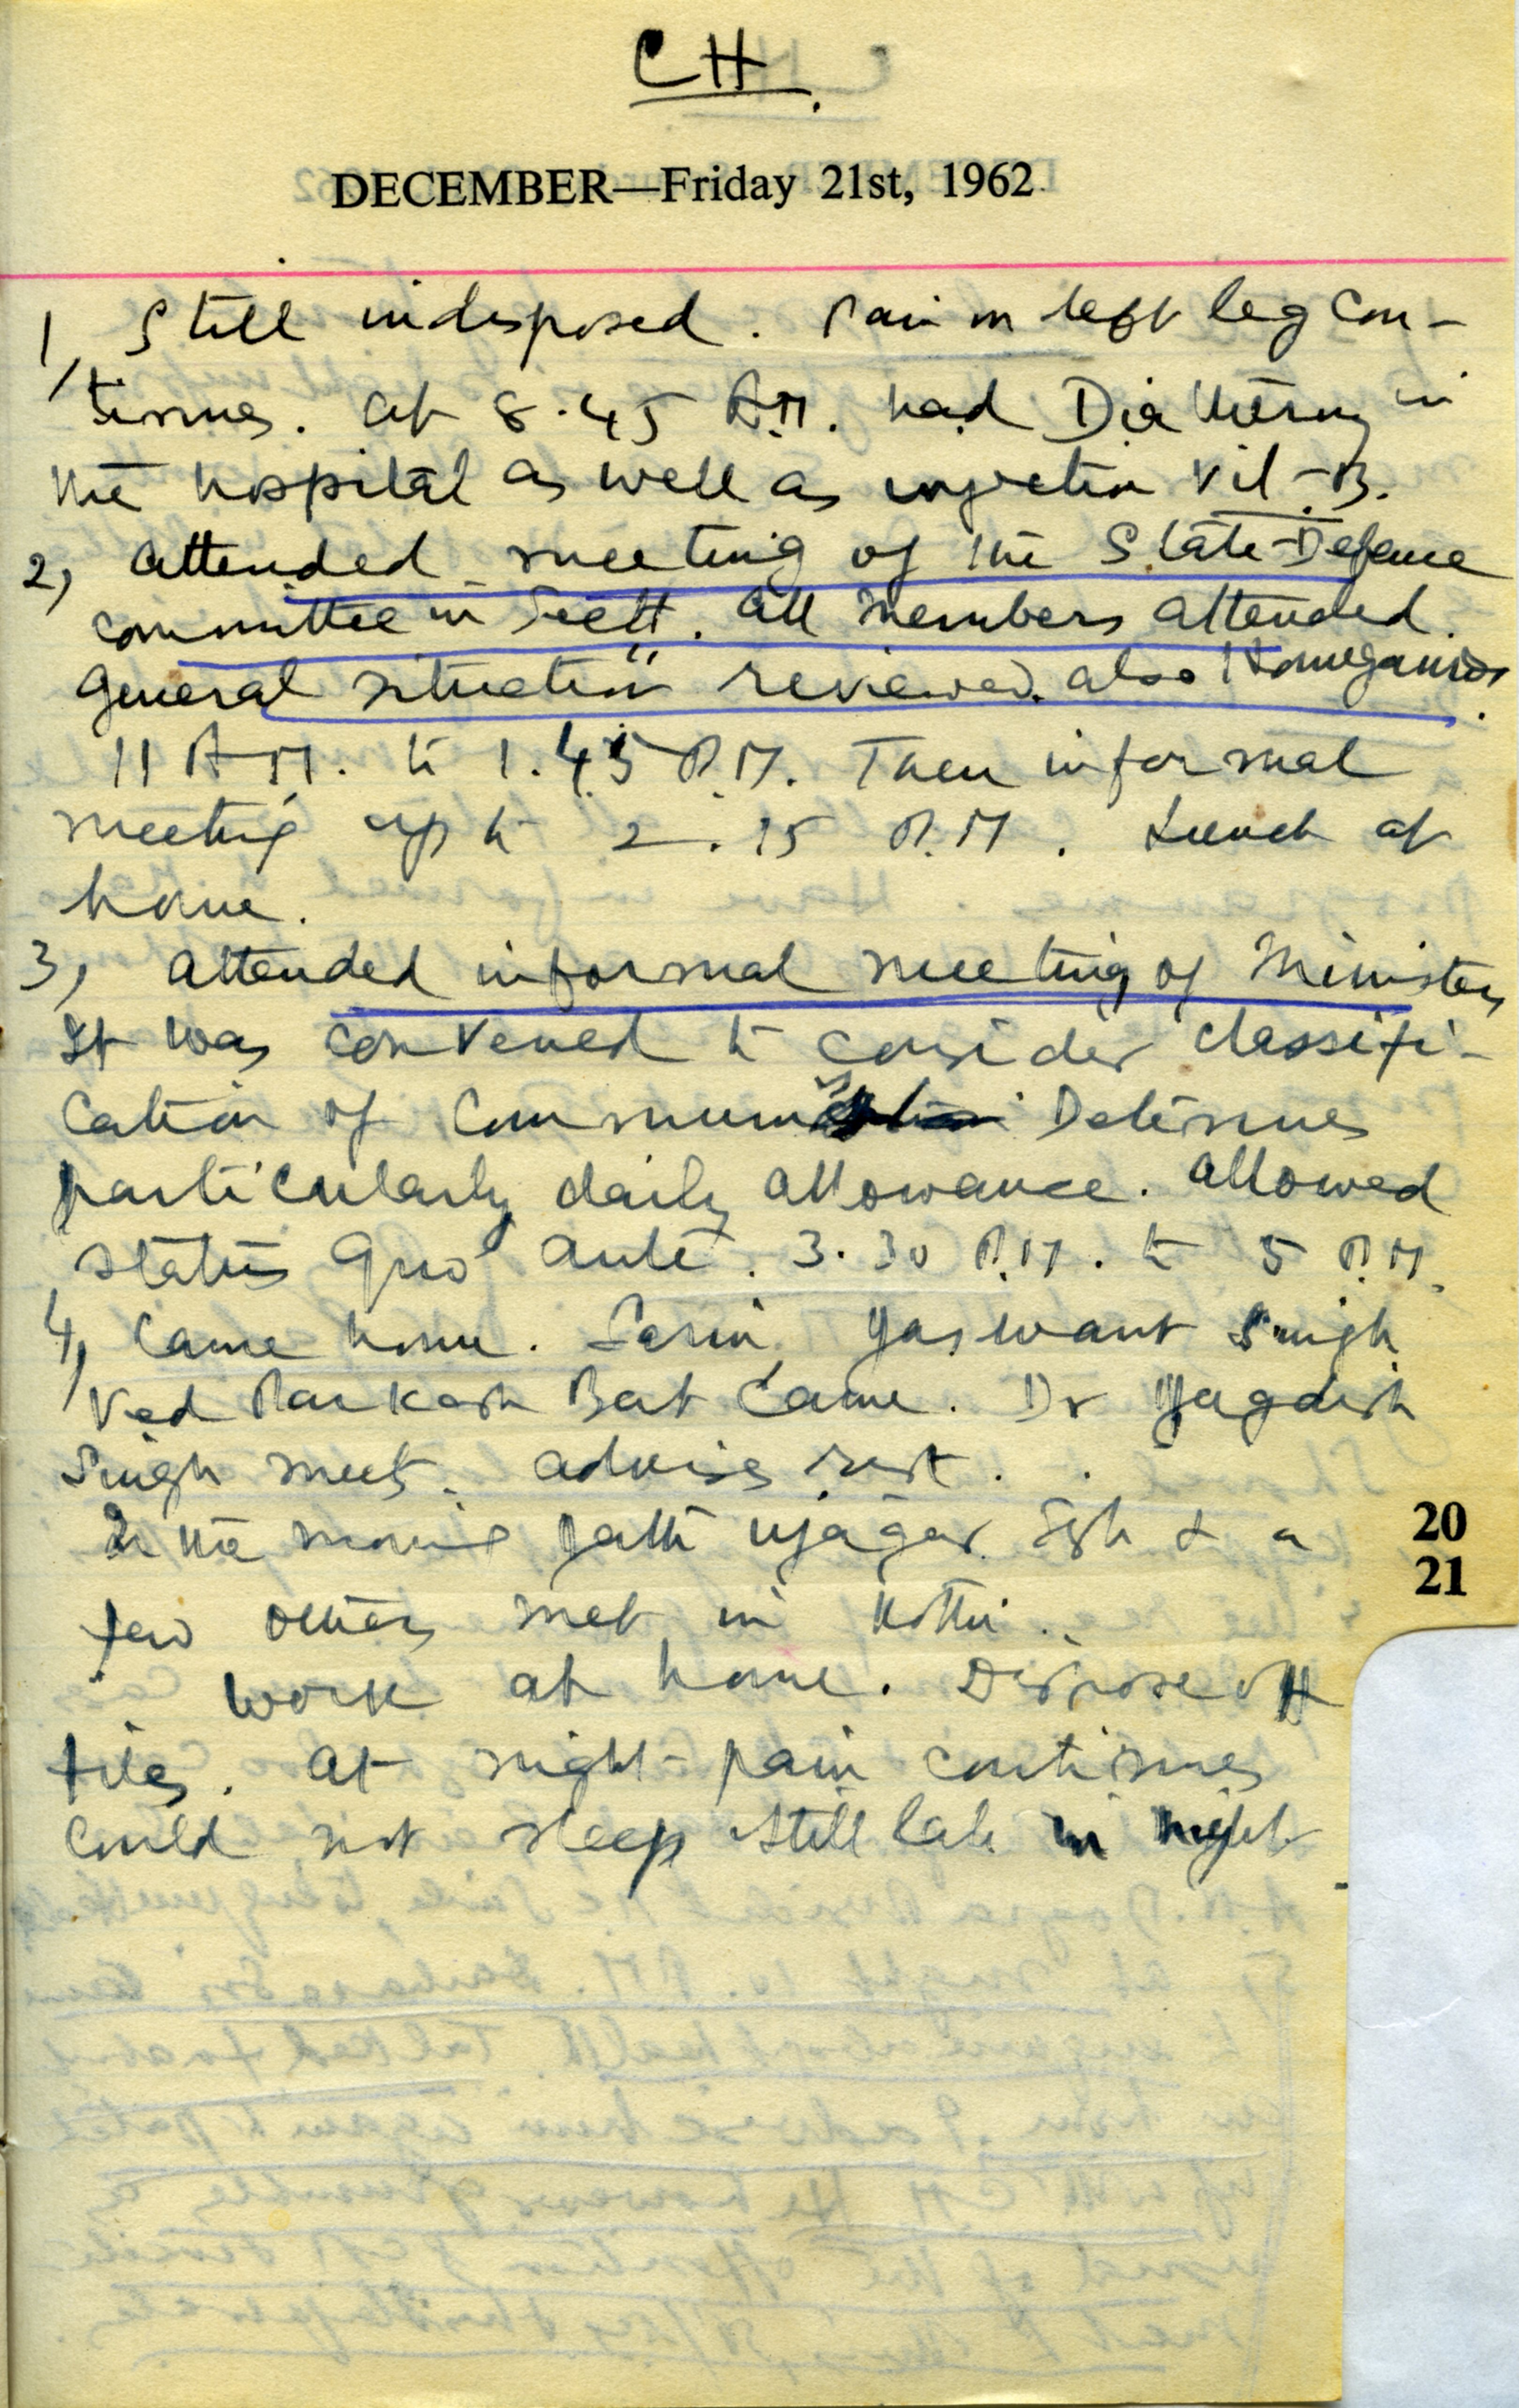 CH.
DECEMBER—Friday 21st, 1962
1, Still indisposed. Pain in left leg con-
tinues. At 8.45 A.M. had Diathermy in
the hospital as well as injection Vit-B.
2, attended meeting of the State Defence
committee in Sectt. All members attended.
General situation reviewed. also Homeguards.
11 A.M. to 1.45 P.M. Then informal
meeting up to 2.15 P.M. Lunch at
home.
3, attended informal meeting of Ministers
It was convened to consider classifi-
cation of Communist Detenues
particularly daily allowance. Allowed
status quo ante. 3.30 P.M. to 5 P.M.
4, Came home. Sarin, Yaswant Singh
Ved Parkash Bat came. Dr Jagdish
Singh meets. advises rest.
In the morning Jathe Ujagar Sgh & a
few others met in Kothi.
Work at home. Dispose off
files. At night pain continues
Could not sleep still late in night
20
21